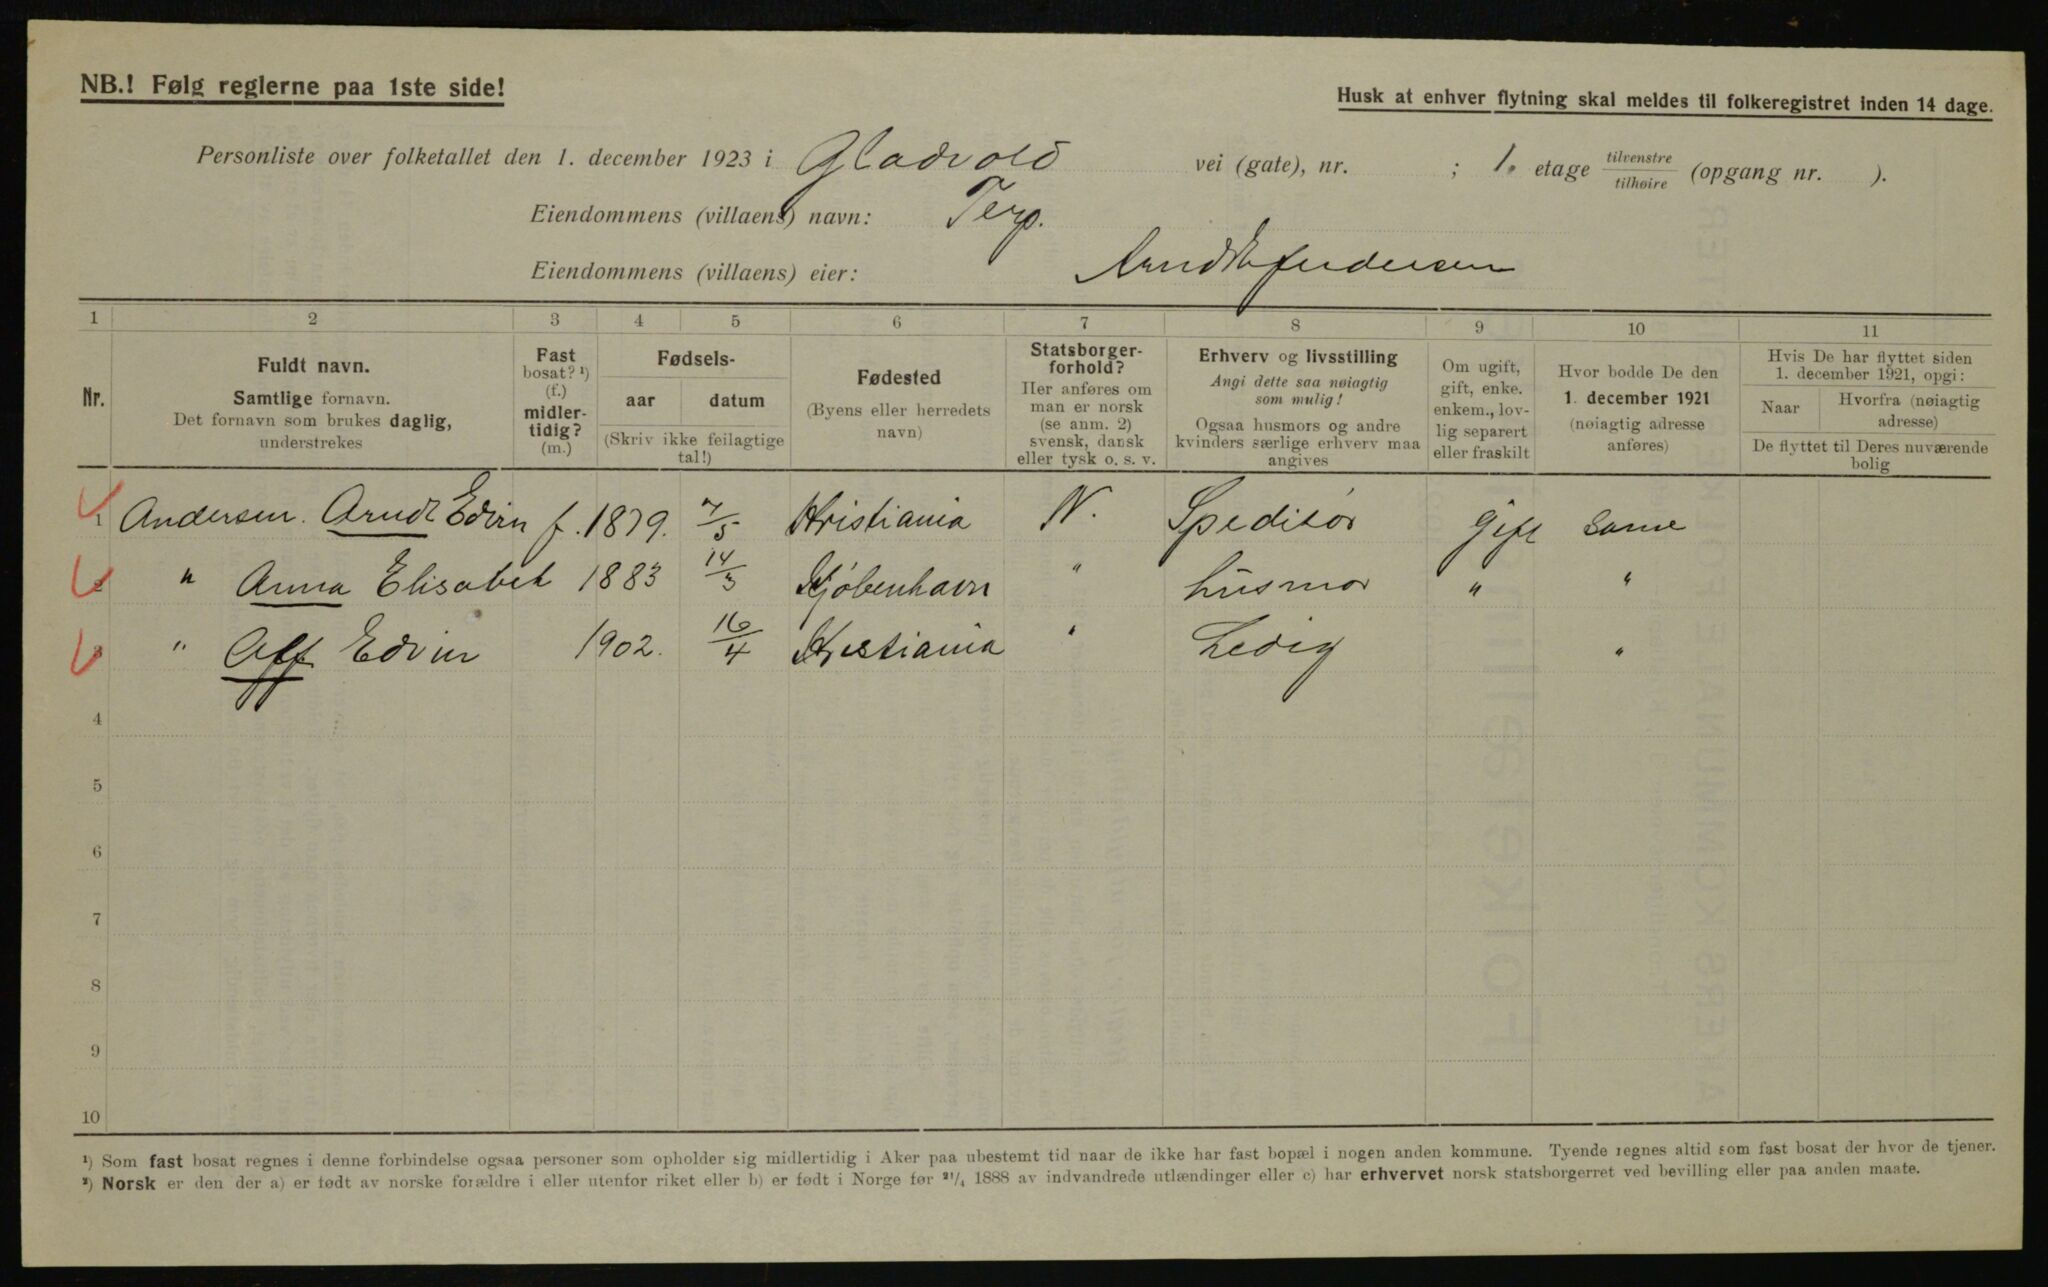 NB.! Følg reglerne paa 1ste side!
Husk at enhver flytning skal meldes til folkeregistret inden 14 dage.
Personliste over folketallet den 1. december 1923 i Gladvold vei (gate), nr. ; 1. etage tilvenstre tilhøire (opgang nr. ).
Eiendommens (villaens) navn: Terp.
Eiendommens (villaens) eier: Arndt Andersen
1 2 3 4 5 6 7 8 9 10 11
Nr.
Fuldt navn.
Samtlige fornavn.
Det fornavn som brukes daglig,
understrekes
Fast
bosat? ¹)
(f.)
midler-
tidig?
(m.)
Fødsels-
aar datum
(Skriv ikke feilagtige
tal!)
Fødested
(Byens eller herredets
navn)
Statsborger-
forhold?
Her anføres om
man er norsk
(se anm. 2)
svensk, dansk
eller tysk o. s. v.
Erhverv og livsstilling
Angi dette saa nøiagtig
som mulig!
Ogsaa husmors og andre
kvinders særlige erhverv maa
angives
Om ugift,
gift, enke.
enkem., lov-
lig separert
eller fraskilt
Hvor bodde De den
1. december 1921
(nøiagtig adresse
anføres)
Hvis De har flyttet siden
1. december 1921, opgi:
Naar
Hvorfra (nøiagtig
adresse)
De flyttet til Deres nuværende
bolig
1 Andersen. Arndt Edvin f. 1879. 7/5 Kristiania N. Speditør gift samme
2 " Anna Elisabet 1883 14/3 Kjøbenhavn " husmor " "
3 " Alf Edvin 1902. 16/4 Kristiania " Ledig "
4
5
6
7
8
9
10
¹) Som fast bosat regnes i denne forbindelse ogsaa personer som opholder sig midlertidig i Aker paa ubestemt tid naar de ikke har fast bopæl i nogen anden kommune. Tyende regnes altid som fast bosat der hvor de tjener.
²) Norsk er den der a) er født av norske forældre i eller utenfor riket eller b) er født i Norge før ²¹/₄ 1888 av indvandrede utlændinger eller c) har erhvervet norsk statsborgerret ved bevilling eller paa anden maate.